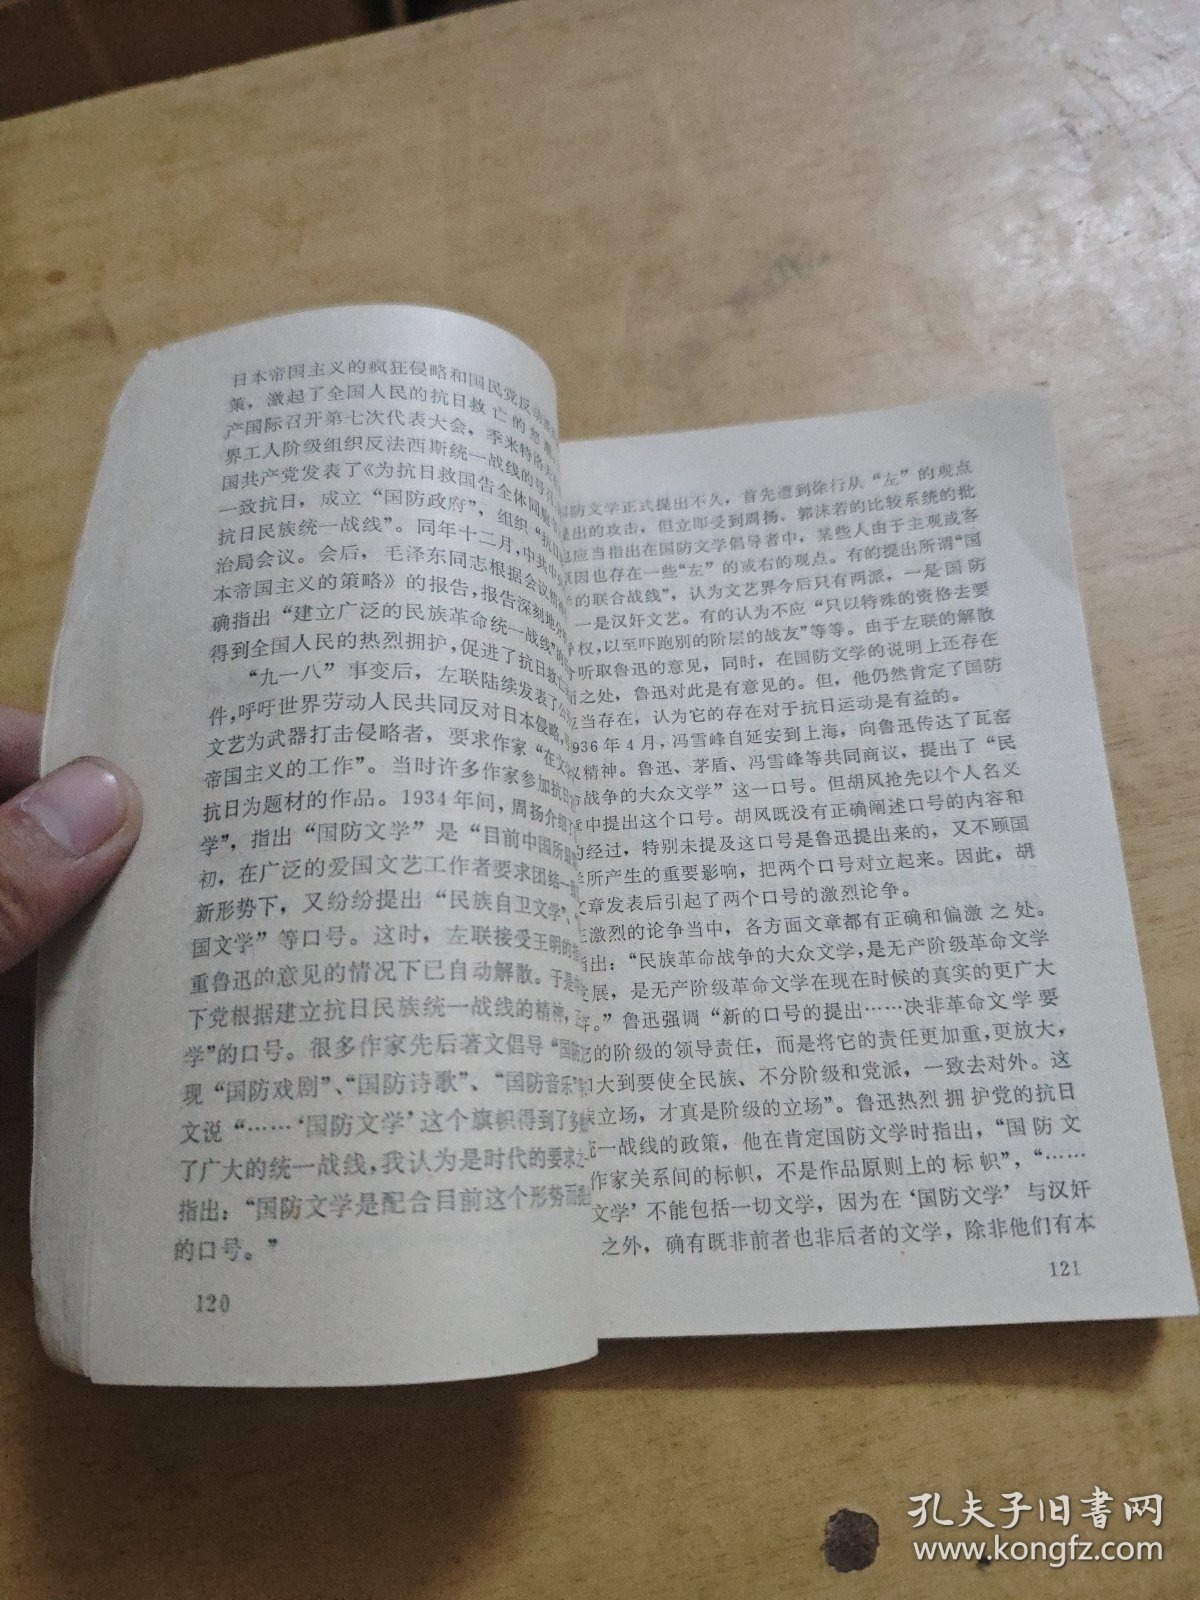 日本帝国主义的疯狂侵略和国民党反动
策，激起了全国人民的抗日救亡的怒
产国际召开第七次代表大会，季米特洛
界工人阶级组织反法西斯统一战线的号
国共产党发表了《为抗日救国告全体同胞
一致抗日，成立“国防政府”，组织“抗日
抗日民族统一战线”。同年十二月，中共中
治局会议。会后，毛泽东同志根据会议精
本帝国主义的策略》的报告，报告深刻地
确指出“建立广泛的民族革命统一战线”
得到全国人民的热烈拥护，促进了抗日救
“九一八”事变后，左联陆续发表了
件，呼吁世界劳动人民共同反对日本侵略，
文艺为武器打击侵略者，要求作家“在文
帝国主义的工作”。当时许多作家参加抗日
抗日为题材的作品。1934年间，周扬介绍了
学”，指出“国防文学”是“目前中国所
初，在广泛的爱国文艺工作者要求团结一
新形势下，又纷纷提出“民族自卫文学”、
国文学”等口号。这时，左联接受王明的
重鲁迅的意见的情况下已自动解散。于是
下党根据建立抗日民族统一战线的精神，
学”的口号。很多作家先后著文倡导“国防
现“国防戏剧”、“国防诗歌”、“国防音乐”
文说“……‘国防文学’这个旗帜得到了多
了广大的统一战线，我认为是时代的要求之
指出：“国防文学是配合目前这个形势而
的口号。”
120
防文学正式提出不久，首先遭到徐行从“左”的观点
出的攻击，但立即受到周扬、郭沫若的比较系统的批
应当指出在国防文学倡导者中，某些人由于主观或客
原因也存在一些“左”的或右的观点。有的提出所谓“国
的联合战线”，认为文艺界今后只有两派，一是国防
一是汉奸文艺。有的认为不应“只以特殊的资格去要
权，以至吓跑别的阶层的战友”等等。由于左联的解散
听取鲁迅的意见，同时，在国防文学的说明上还存在
之处，鲁迅对此是有意见的。但，他仍然肯定了国防
当存在，认为它的存在对于抗日运动是有益的。
936年4月，冯雪峰自延安到上海，向鲁迅传达了瓦窑
义精神。鲁迅、茅盾、冯雪峰等共同商议，提出了“民
战争的大众文学”这一口号。但胡风抢先以个人名义
中提出这个口号。胡风既没有正确阐述口号的内容和
经过，特别未提及这口号是鲁迅提出来的，又不顾国
所产生的重要影响，把两个口号对立起来。因此，胡
文章发表后引起了两个口号的激烈论争。
激烈的论争当中，各方面文章都有正确和偏激之处。
指出：“民族革命战争的大众文学，是无产阶级革命文学
发展，是无产阶级革命文学在现在时候的真实的更广大
。”鲁迅强调“新的口号的提出……决非革命文学要
它的阶级的领导责任，而是将它的责任更加重，更放大，
大到要使全民族、不分阶级和党派，一致去对外。这
族立场，才真是阶级的立场”。鲁迅热烈拥护党的抗日
一战线的政策，他在肯定国防文学时指出，“国防文
作家关系间的标帜，不是作品原则上的标帜”，“……
文学’不能包括一切文学，因为在‘国防文学’与汉奸
之外，确有既非前者也非后者的文学，除非他们有本
121
孔夫子旧书网
www.kongfz.com